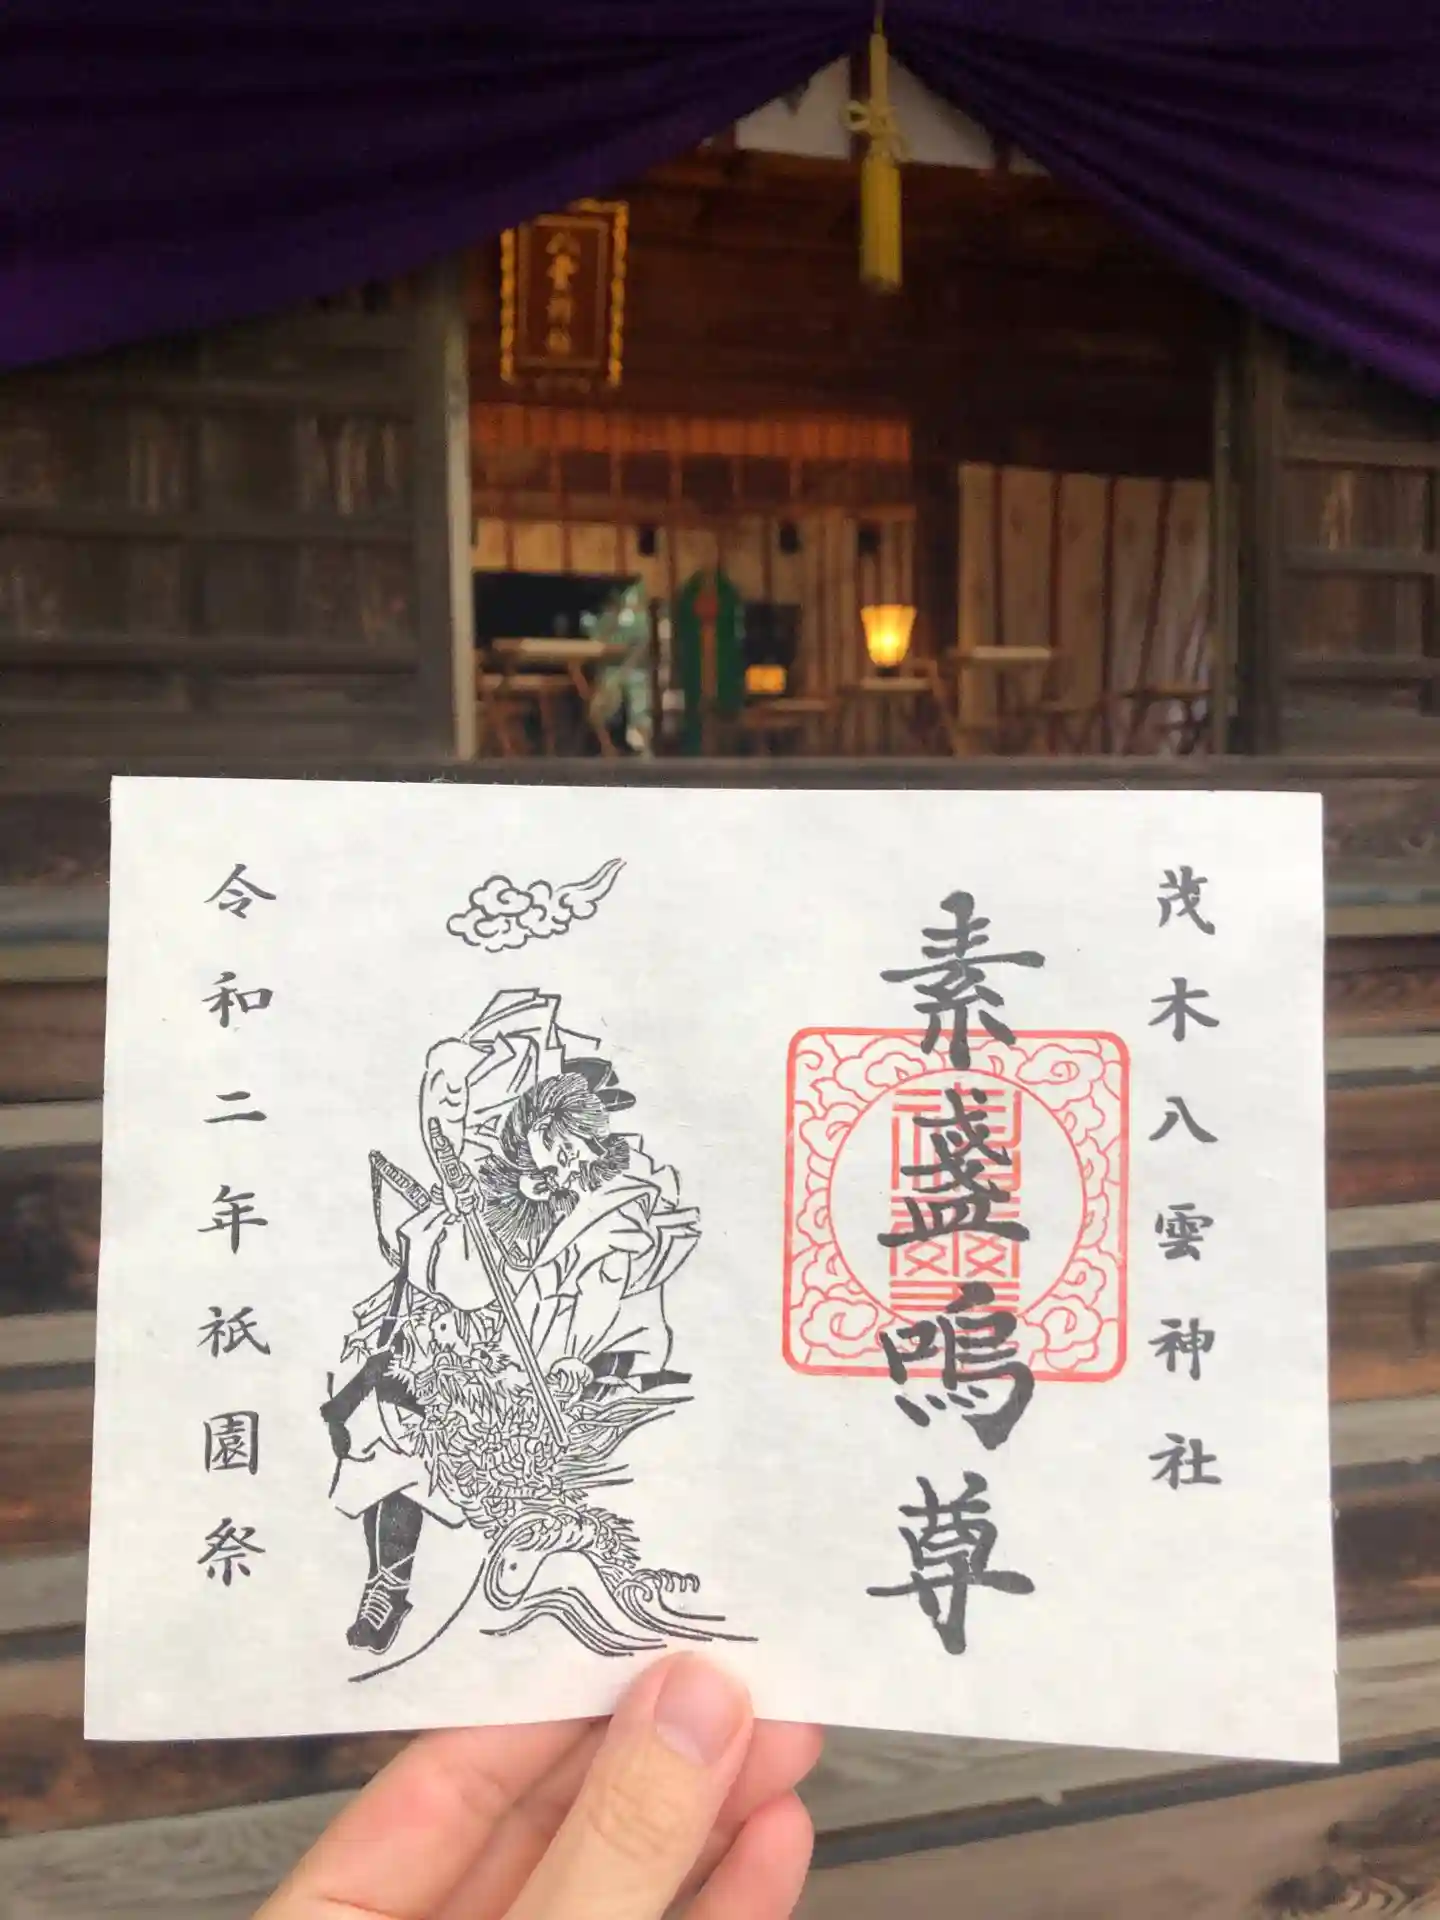 八雲神社
茂木八雲神社
素盞嗚尊
令和二年祇園祭